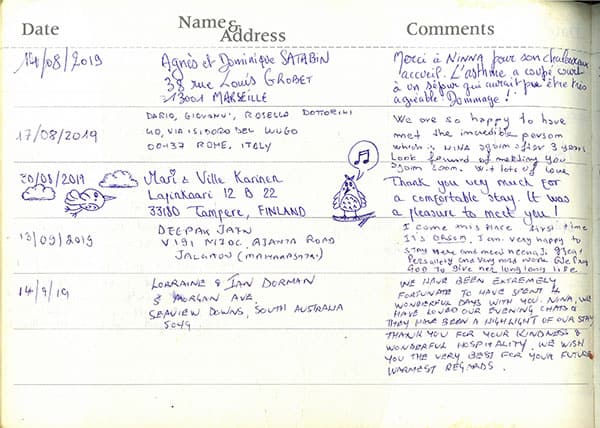 Date
Name & Address
Comments
14/08/2019
Agnès et Dominique SATABIN
38 rue Louis GROBET
13001 MARSEILLE
Merci à NINNA pour son chaleureux
accueil. L'asthme a coupé court
à un séjour qui aurait pu être très
agréable. Dommage!
17/08/2019
DARIO, GIOVANNI, ROSELLA DOTTORINI
40, VIA ISIDORO DEL LUNGO
00137 ROME, ITALY
We are so happy to have
met the incredible person
which is NINA again after 3 years
Look forward of meeting you
again soon. Wit lots of love
20/08/2019
Mari & Ville Karinen
Lapinkaari 12 B 22
33180 Tampere, FINLAND
Thank you very much for
a comfortable stay. It was
a pleasure to meet you!
13/09/2019
DEEPAK JAIN
V191 MIDC, AJANTA ROAD
JALGAON (MAHARASHTRA)
I come this place first time
It's I am very happy to
stay here and meet
and very
God to give long long life
14/9/19
LORRAINE & IAN DORMAN
3 MORGAN AVE
SEAVIEW DOWNS, SOUTH AUSTRALIA
5049
WE HAVE BEEN EXTREMELY
FORTUNATE TO HAVE SPENT 4
WONDERFUL DAYS WITH YOU. NINA, WE
HAVE LOVED OUR EVENING CHATS &
THEY HAVE BEEN A HIGHLIGHT OF OUR STAY
THANK YOU FOR YOUR KINDNESS &
WONDERFUL HOSPITALITY. WE WISH
YOU THE VERY BEST FOR YOUR FUTURE
WARMEST REGARDS.